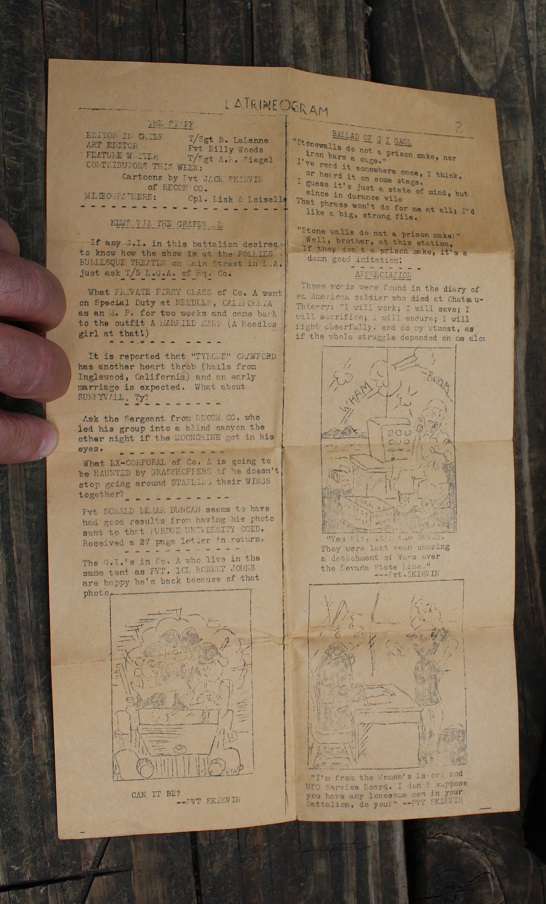 LATRINEOGRAM
2
THE STAFF
EDITOR IN CHIEF T/Sgt B. LaLanne
ART EDITOR Pvt Billy Woods
FEATURE WRITER T/Sgt A.R. Siegel
CONTRIBUTORS THIS WEEK:
Cartoons by Pvt JACK SKIRVIN
of RECON CO.
MIMEOGRAPHERS: Cpl. Lisk & Loiselle
NEWS VIA THE GRAPEVINE
If any G.I. in this battalion desires
to know how the show is at the FOLLIES
BURLESQUE THEATER on Main Street in L.A.
just ask T/5 L.G.A. of Hq. Co.
What PRIVATE FIRST CLASS of Co. A went
on Special Duty at NEEDLES, CALIFORNIA
as an M. P. for two weeks and came back
to the outfit A MARRIED MAN? (A Needles
girl at that)
It is reported that "TYRONE" CRAWFORD
has another heart throb (hails from
Inglewood, California) and an early
marriage is expected. What about
Ty?
Ask the Sergeant from RECON CO. who
led his group into a blind canyon the
other night if the MOONSHINE got in his
eyes.
What EX-CORPORAL of Co. A is going to
be HAUNTED by GRASSHOPPERS if he doesn't
stop going around STAPLING their WINGS
together?
Pvt DONALD DEMAR DUNCAN seems to have
had good results from having his photo
sent to that PURDUE UNIVERSITY COED.
Received a 27 page letter in return.
The G.I.'s in Co. A who live in the
same tent as PVT. 1CL ROBERT JOHNS
are happy he's back because of that
photo.
CAN IT BE?
--PVT SKIRVIN
BALLAD OF G I GAOL
"Stonewalls do not a prison make, nor
iron bars a cage."
I've read it somewhere once, I think,
or heard it on some stage.
I guess it's just a state of mind, but
since in durance vile
That phrase won't do for me at all; I'd
like a big, strong file.
"Stone walls do not a prison make!"
Well, brother, at this station,
If they don't a prison make, it's a
damn good imitation!
APPRECIATION
These words were found in the diary of
an American soldier who died at Chateau-
Thierry: "I will work; I will save; I
will sacrifice; I will endure; I will
fight cheerfully, and do my utmost, as
if the whole struggle depended on me alone
WHAM
They were last seen chasing
a detachment of Wacs over
the Nevada State Line."
---Pvt. SKIRVIN
"I'm from the Women's and
USO Service Board. I don't suppose
you have any lonesome men in your
Battalion, do you?" --PVT SKIRVIN